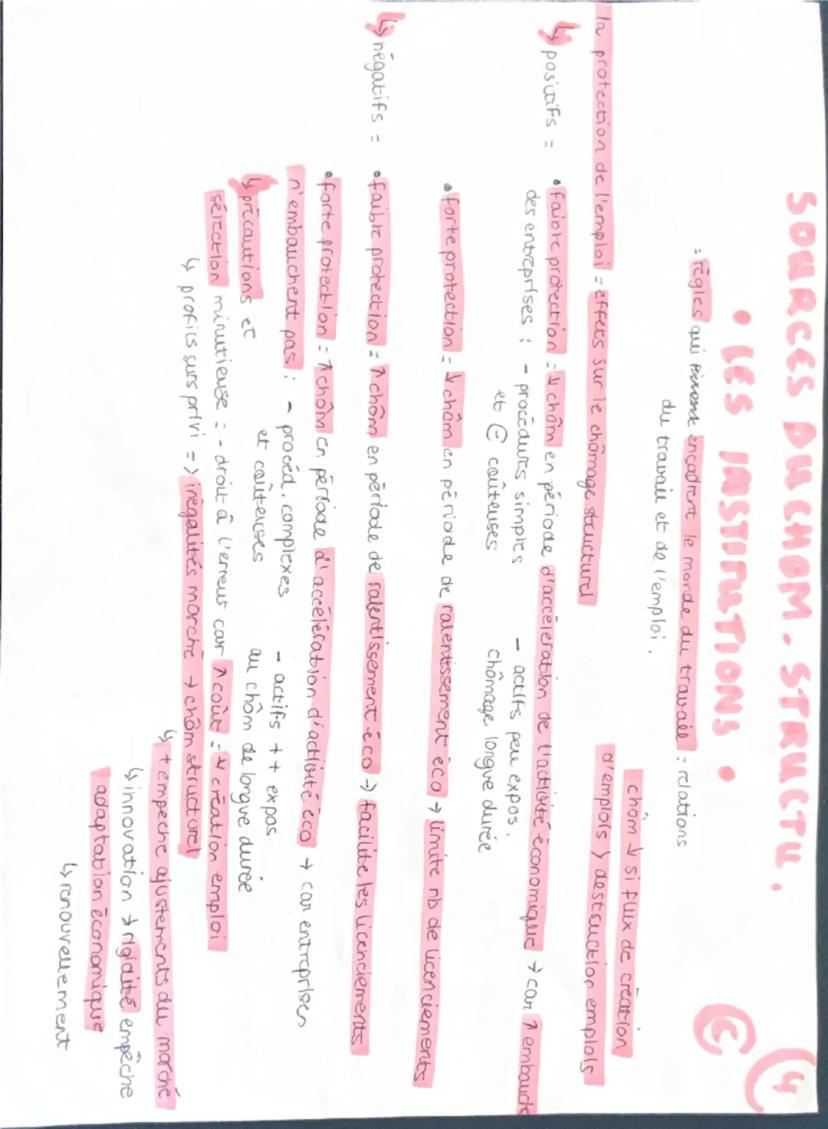 SOURCES DU CHOM. STRUCTU.
④
• LES INSTITUTIONS •
C
= règles qui encadrent le monde du travail = relations
du travail et de l'emploi.
chôm ↓ si flux de création
d'emplois > destruction emplois
la protection de l'emploi = effets sur le chômage structurel
↳ positifs = • faible protection = ↓ chôm en période d'accélération de l'activité économique → car ↗ embauche
des entreprises : - procédures simples - actifs peu expos.
et ⊖ coûteuses chômage longue durée
• forte protection = ↓ chôm en période de ralentissement éco → limite nb de licenciements
↳ négatifs = • faible protection = ↑ chôm en période de ralentissement éco → facilite les licenciements
• forte protection = ↑ chôm en période d'accélération d'activité éco → car entreprises
n'embauchent pas : - procéd. complexes - actifs ++ expos
et coûteuses au chôm de longue durée
↳ précautions et
sélection minutieuse = - droit à l'erreur car ↗ coût = ↓ création emploi
↳ profils surs privi => inégalités marché → chôm structurel
↳ + empeche ajustements du marché
↳ innovation → rigidité empêche
adaptation économique
↳ renouvellement